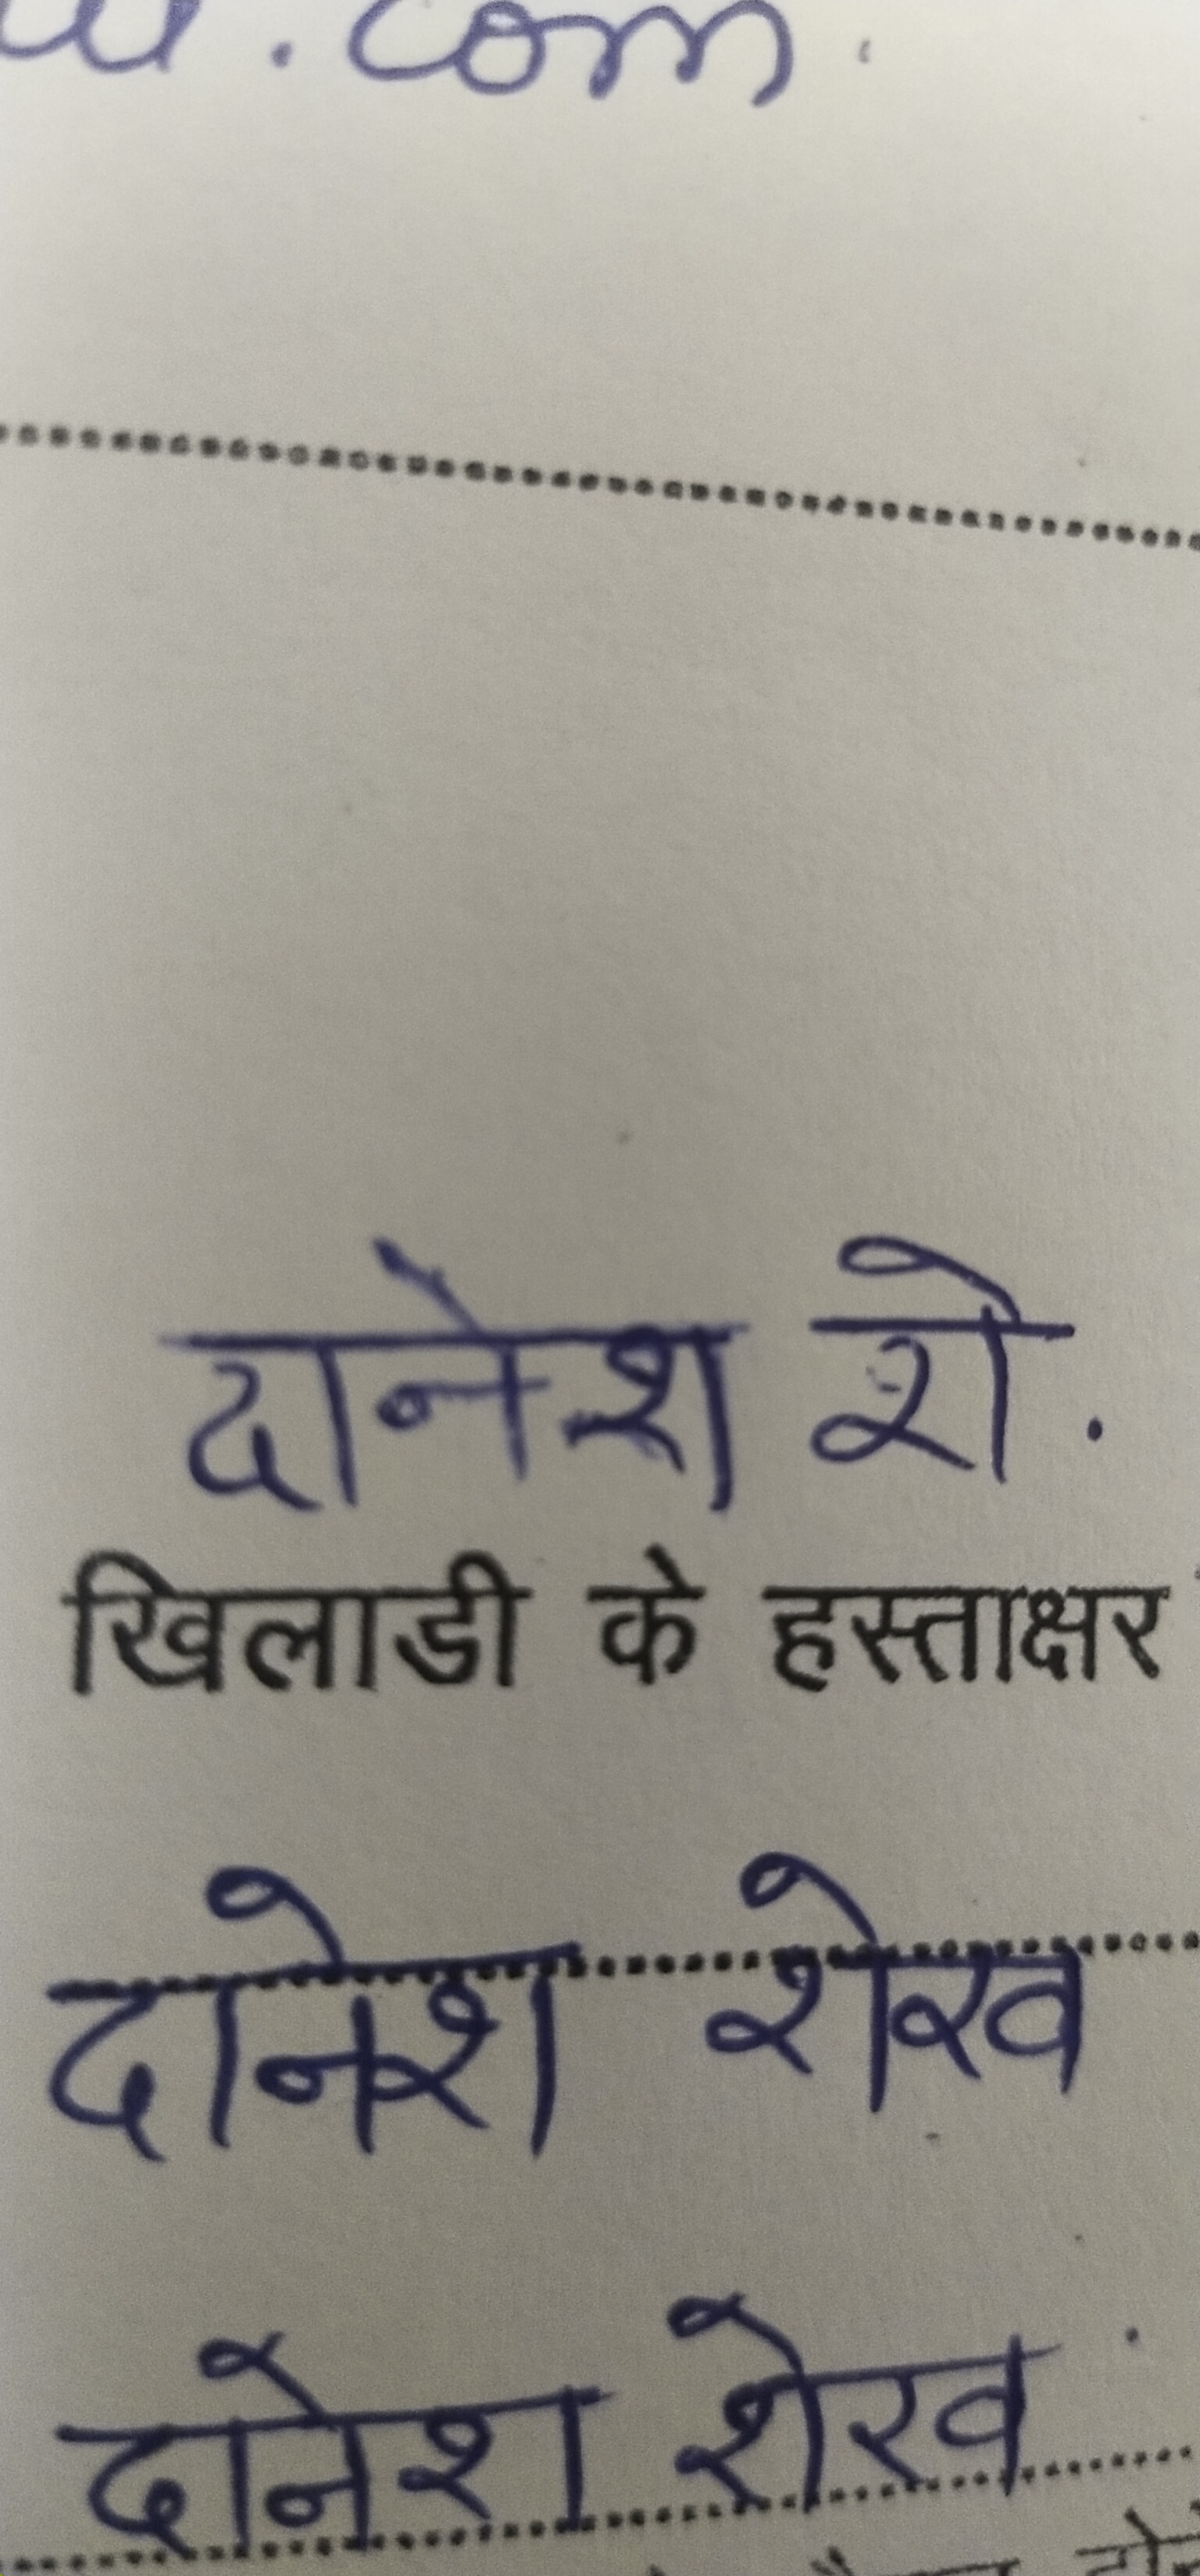 . com
दानेश शे.
खिलाडी के हस्ताक्षर
दानेश शेख
दानेश शेख